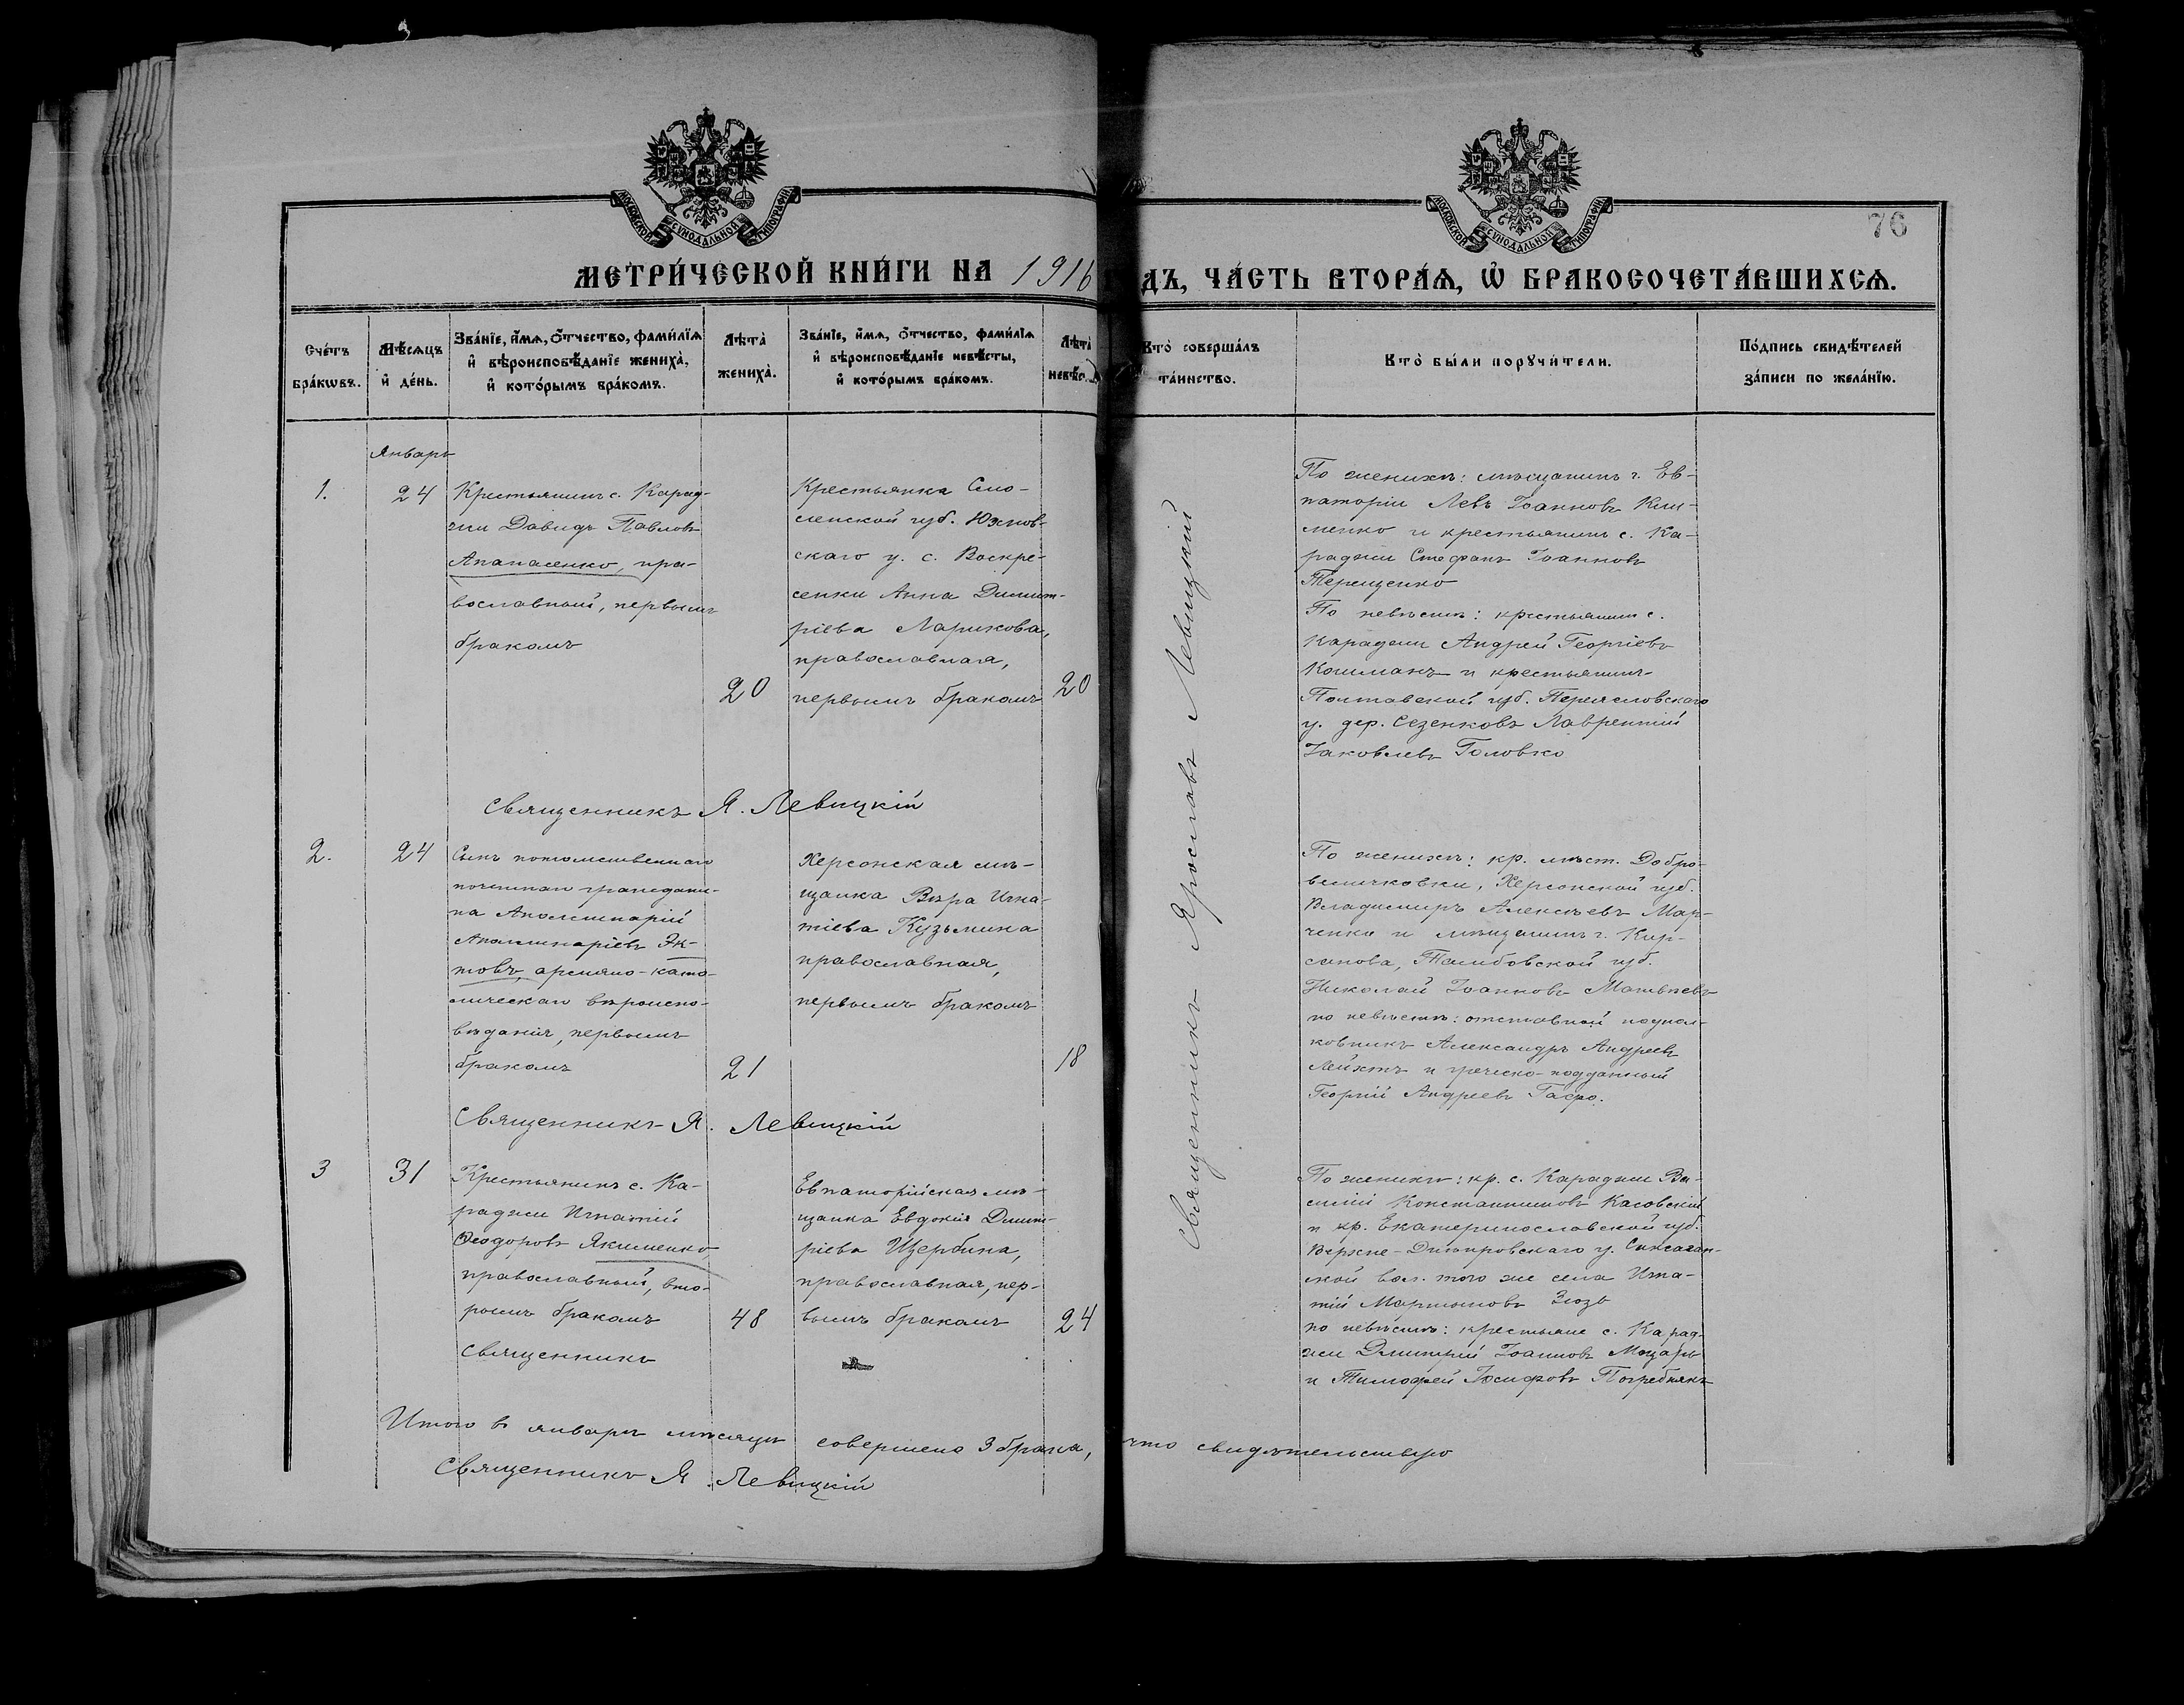 76
МЕТРИ́ЧЕСКОЙ КНИ́ГИ НА 1916
ДЪ, ЧА́СТЬ ВТОРА́Ѧ, Ѡ҆ БРАКОСОЧЕТА́ВШИХСѦ.
Сче́тъ бра́кѡвъ.
Мѣ́сѧцъ и҆ де́нь.
Зва́нїе, и҆́мѧ, ѻ҆́тчество, фами́лїѧ
и҆ вѣроисповѣ́данїе жениха̀,
и҆ кото́рымъ бра́комъ.
Лѣта̀ жениха̀.
Зва́нїе, и҆́мѧ, ѻ҆́тчество, фами́лїѧ
и҆ вѣроисповѣ́данїе невѣ́сты,
и҆ кото́рымъ бра́комъ.
Лѣта̀ невѣ́с
Кто̀ соверша́лъ та́инство.
Кто̀ бы́ли порꙋчи́тели.
По́дпись свидѣ́телей за́писи по жела́нїю.
Январь
1.
24
Крестьянинъ с. Карад-
жи Давидъ Павловъ
Апанасенко, пра-
вославный, первымъ
бракомъ
20
Крестьянка Смо-
ленской губ. Юхнов-
скаго у. с. Воскре-
сенки Анна Димит-
ріева Ларикова,
православная,
первымъ бракомъ
20
По женихѣ: мѣщанинъ г. Ев-
паторіи Левъ Іоанновъ Кли-
менко и крестьянинъ с. Ка-
раджи Стефанъ Іоанновъ
Терещенко
По невѣстѣ: крестьянинъ с.
Караджи Андрей Георгіевъ
Кошманъ и крестьянинъ
Полтавской губ. Переясловскаго
у. дер. Сезенковъ Лаврентій
Іаковлевъ Головко
Священникъ Я. Левицкій
Священникъ Ярославъ Левицкій
2.
24
Сынъ потомственнаго
почетнаго граждани-
на Аполлинарій
Аполлинаріевъ Эк-
товъ, армяно-като-
лическаго вѣроиспо-
вѣданія, первымъ
бракомъ
21
Херсонская мѣ-
щанка Вѣра Игна-
тіева Кузьмина
православная,
первымъ бракомъ
18
По женихѣ: кр. мѣст. Добро-
величковки, Херсонской губ.
Владимиръ Алексѣевъ Мар-
ченко и мѣщанинъ г. Кир-
санова, Тамбовской губ.
Николай Іоанновъ Матвѣевъ
по невѣстѣ: отставной подпол-
ковникъ Александръ Андреевъ
Лейхтъ и греческо-подданный
Георгій Андреевъ Гафо.
Священникъ Я. Левицкій
3
31
Крестьянинъ с. Ка-
раджи Игнатій
Ѳеодоровъ Якименко,
православный, вто-
рымъ бракомъ
48
Евпаторійская мѣ-
щанка Евдокія Димит-
ріева Щербина,
православная, пер-
вымъ бракомъ
24
По женихѣ: кр. с. Караджи Ва-
силій Константиновъ Касовскій
и кр. Екатеринославской губ.
Верхне-Днѣпровскаго у.
ской вол. того же села Игна-
тій Мартыновъ Зюзь
по невѣстѣ: крестьяне с. Карад-
жи Димитрій Іоанновъ Моцарь
и Тимофей Іосифовъ Погребнякъ
Священникъ
Итого въ январѣ мѣсяцѣ совершено 3 брака, что свидѣтельствую
Священникъ Я. Левицкій